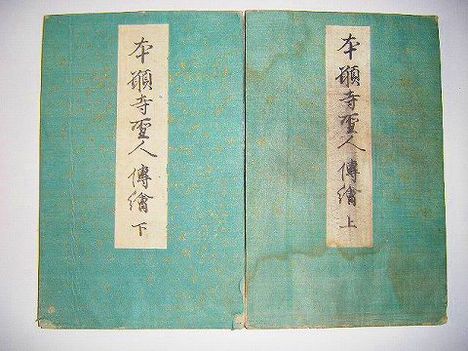 本願寺聖人傳繪上
本願寺聖人傳繪下